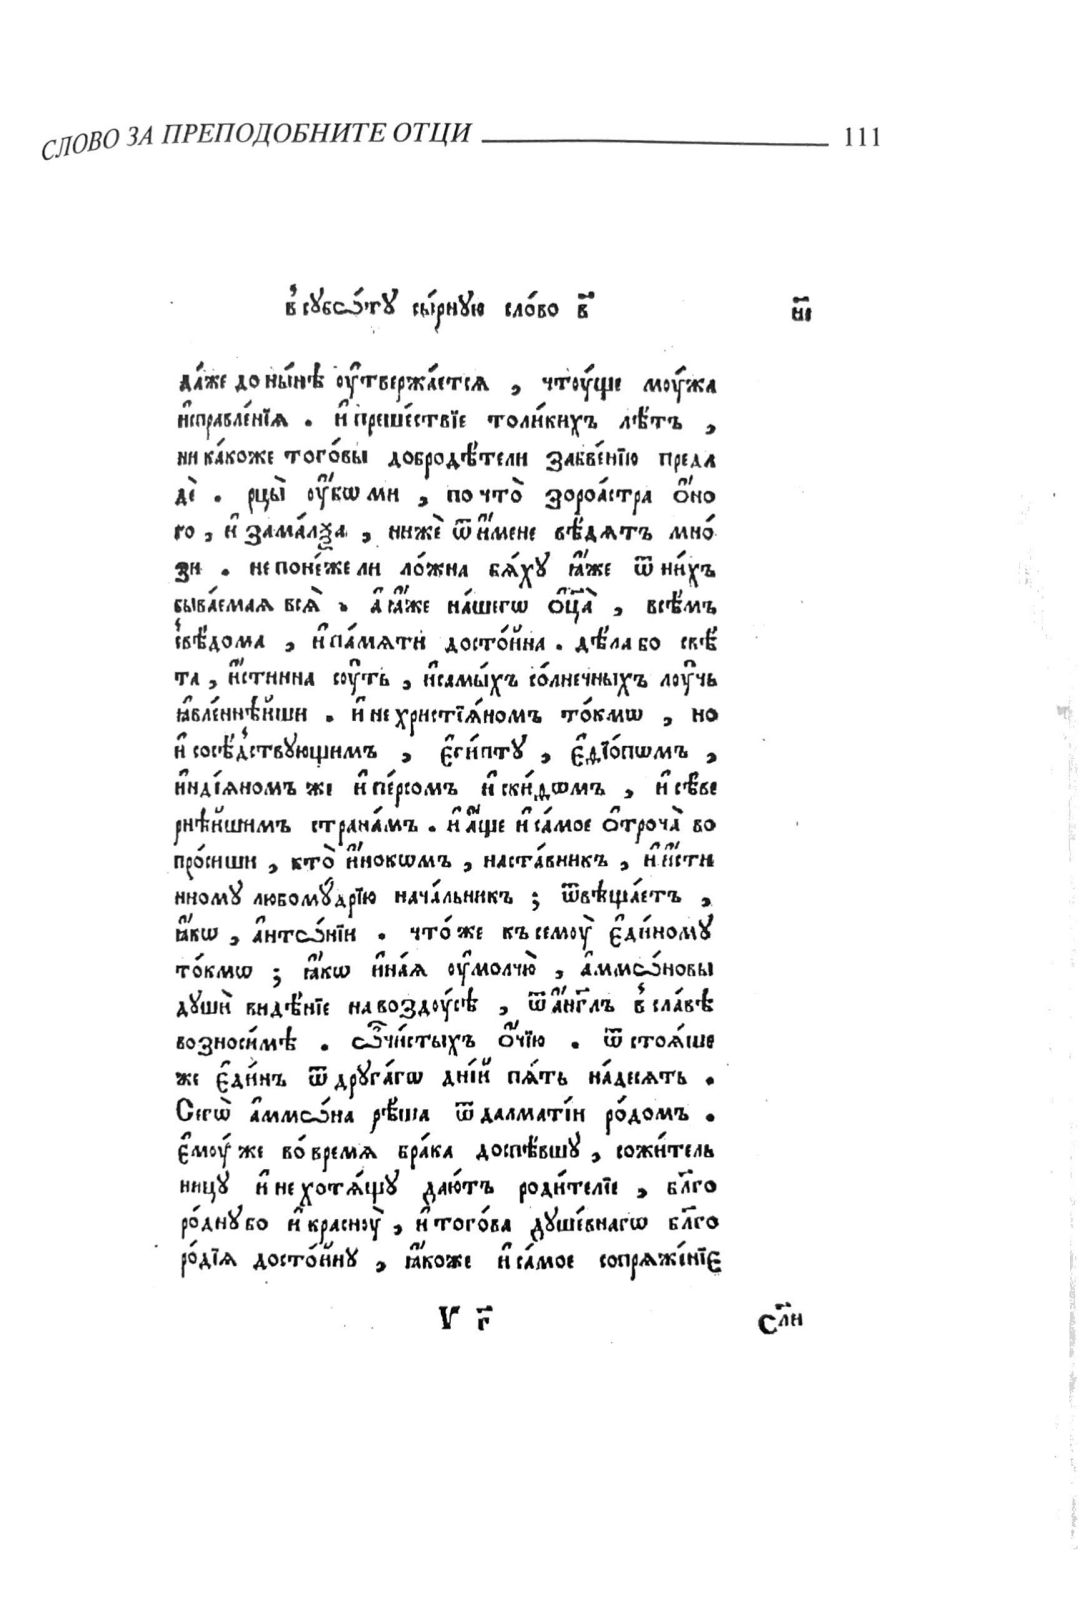 СЛОВО ЗА ПРЕПОДОБНИТЕ ОТЦИ 111
в҆ сꙋбѡ́тꙋ сы́рнꙋю сло́во в҃ н҃і
да́же до ны́нѣ оу҆твержа́етсѧ , чтоу́ще моу́жа
и҆справле́нїѧ . и҆ преше́ствїе толи́кихъ лѣ́тъ ,
ни ка́коже тогѡ́вы добродѣ́тели забве́нїю преда
дѐ . рцы̀ оу҆́бѡ ми , по что̀ зороа́стра ѻ҆́но
го , и҆ замалѯа , нижѐ ѿ и҆́мене вѣ́дѧтъ мно́
зи . не поне́же ли ло́жна бѧ́хꙋ ꙗ҆́же ѿ ни́хъ
быва́емаѧ всѧ̀ . а҆ ꙗ҆́же на́шегѡ ѻ҆ц҃а̀ , всѣ́мъ
свѣ́дома , и҆ па́мѧти досто́йна . дѣ́ла бо свѣ́
та , и҆́стинна сꙋ́ть , и҆ са́мыхъ со́лнечныхъ лоу́чь
ꙗ҆вле́ннѣйши . и҆ не христїѧ́номъ то́кмѡ , но
и҆ сосѣ́дствꙋющимъ , є҆ги́птꙋ , є҆ѳїо́пѡмъ ,
и҆ндїѧ́номъ же и҆ пе́рсомъ и҆ ски́ѳѡмъ , и҆ сѣ́ве
рнѣ́йшимъ страна́мъ . и҆ а҆́ще и҆ са́мое ѻ҆троча̀ во
про́сиши , кто̀ и҆́нокѡмъ , наста́вникъ , и҆ и҆́сти
нномꙋ любомꙋ́дрїю нача́льникъ ; ѿвѣща́етъ ,
ꙗ҆́кѡ , а҆нтѡ́нїи . что́ же къ семоу̀ є҆ди́номꙋ
то́кмѡ ; ꙗ҆́кѡ и҆на́ѧ оу҆молчю̀ , а҆ммѡ́новы
дꙋшѝ видѣ́нїе на воздоу́сѣ , ѿ а҆́нг҃лъ в҆ сла́вѣ
возноси́мѣ . ѡ҆чи́стыхъ ѻ҆́чїю . ѿстоѧ́ше
же є҆ди́нъ ѿ дрꙋга́гѡ дні́й пѧ́ть на́десѧть .
Сегѡ̀ а҆ммѡ́на рѣ́ша ѿ далматі́и ро́домъ .
є҆моу́ же во́ времѧ бра́ка доспѣ́вшꙋ , сожи́тель
ницꙋ и҆ не хотѧ́щꙋ даю́тъ роди́телїе , бл҃го
ро́днꙋ бо и҆ красноу̀ , и҆ того́ва дꙋше́внагѡ бл҃го
ро́дїѧ досто́йнꙋ , ꙗ҆́коже и҆ са́мое сопрѧже́нїе
Ѵ г҃ сл҃и